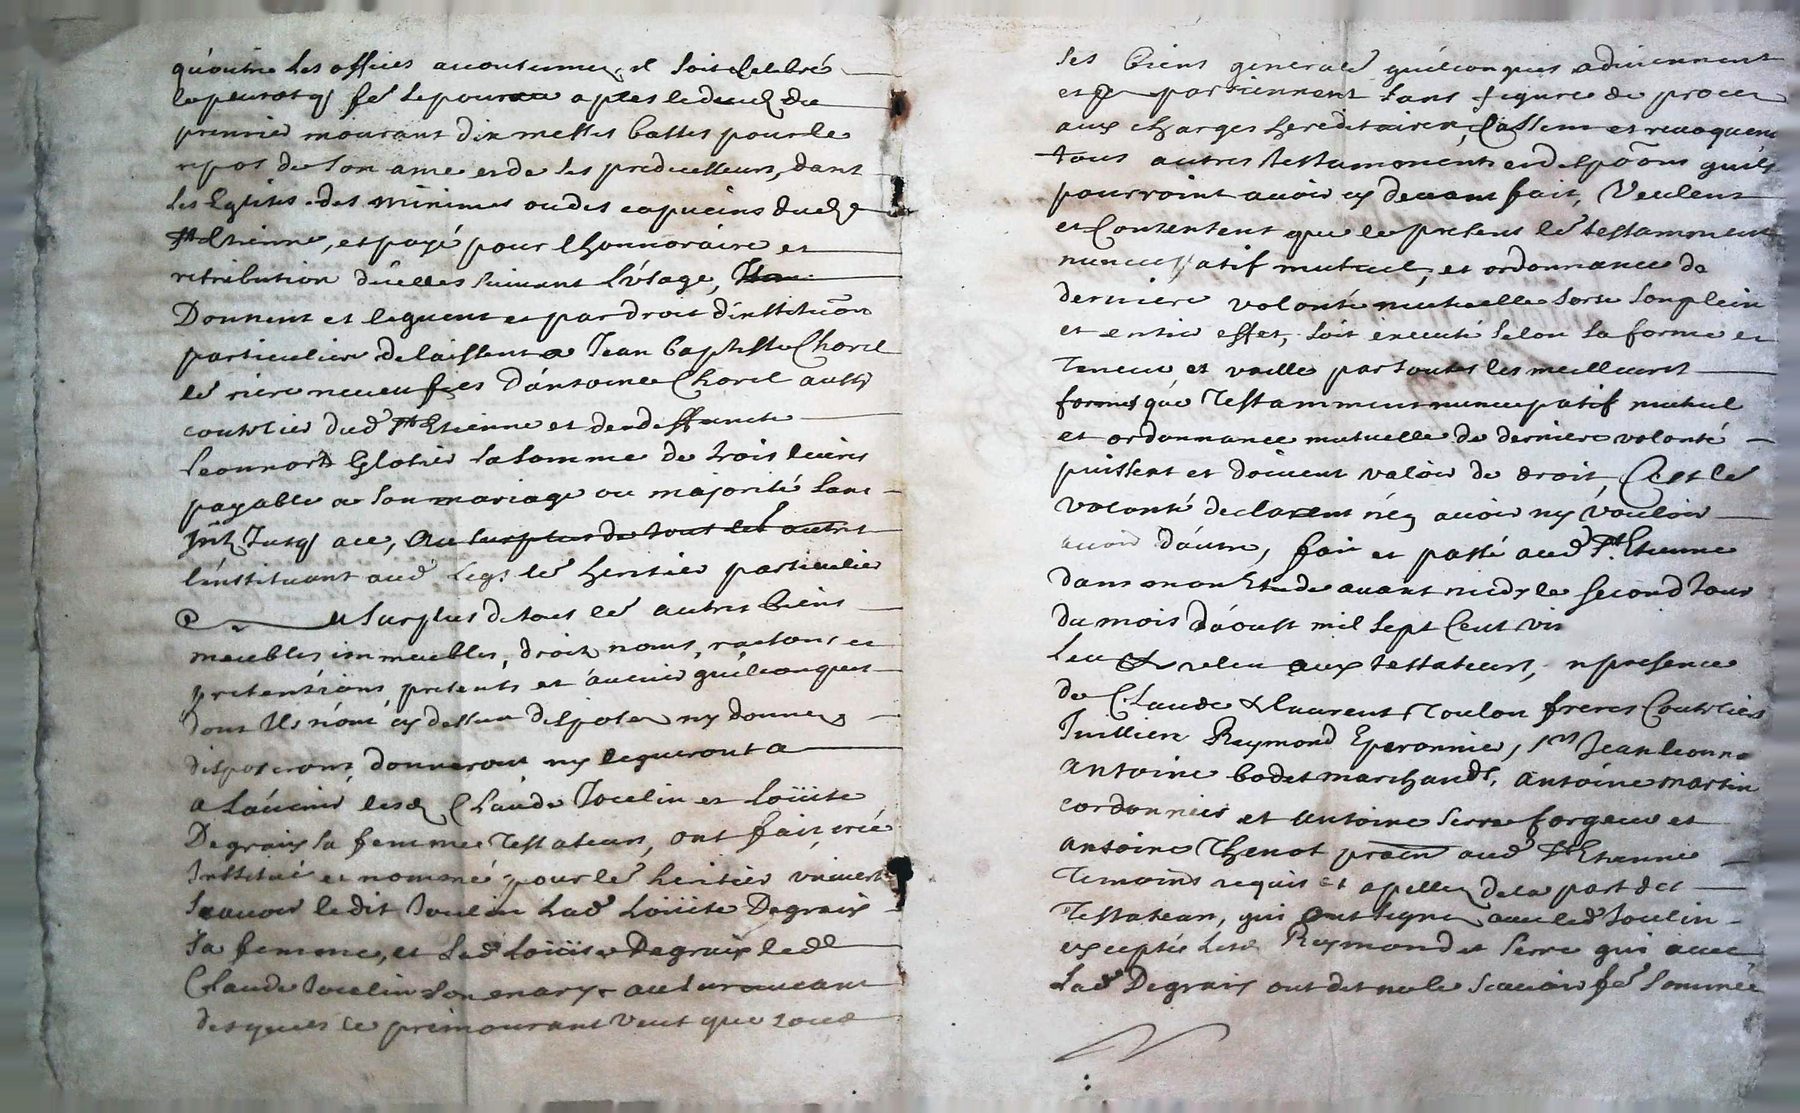 qu'outre les offices accoutumez, il soit celebrés
le pourra fe apres le deced du
premier mourant dix messes basses pour le
repos de son ame et de ses predecesseurs, dans
les Eglises des minimes ou des capucins dud
St Etienne, et payé pour l'honnoraire et
retribution d'icelles suivant l'usage,
Donnent et leguent et par droit d'institu͠on
particuliere delaissent a Jean Baptiste Chorel
d'antoine Chorel aussy
coutelier dud St Etienne et de deffuncte
la somme de trois livres
payable a son mariage ou majorité sans
Jusq a ce, au surplus de tous les autres
l'instituant aud legs le heritier particulier
surplus de tous les autres biens
meubles immeubles, droits noms, raisons et
pretensions presents et avenir quélconques
dont ils n'ont cy dessus disposez ny donnez
disposeront, donneront ny legueront a
a l'avenir lesd Claude Jocelin et Loüise
Degraix sa femme Testateurs, ont fait, créé
Institué et nommé pour le heritier univers
Scavoir ledit Joulin lad Loüise Degraix
sa femme, et lad Loüise Degraix led
Claude Jocelin son mary au survivant
desquels le premourant veut que tous
ses biens generale quélconques adviennent
et partiennent sans figure de proces
aux charges hereditaires, Cassent et revoquent
tous autres testaments et disp͠ons quils
pourroint avoir cy devant fait, Veulent
et Consentent que le present le testamment
nuncupatif mutuel, et ordonnance de
derniere volonté mutuelle sorte son plein
et entier effet, soit executé selon sa forme et
Teneur et vaille par toutes les meilleures
formes que Testamment nuncupatif mutuel
et ordonnance mutuelle de derniere volonté
puissent et doivent valoir de droit, C'est le
volonté declarent n'en avoir ny vouloir
avoir d'autre, fait et passé aud St Etienne
dans mon Etude avant midy le second Jour
du mois d'aoust mil sept Cent
Leu & releu aux testateurs, en presence
de Claude & Laurent Moulon freres Couteliers
Raymond Eperonnier, Jean
antoine bodet marchands, antoine martin
cordonnier et antoine Serre forgeur et
antoine Thenot aud St Etienne
Temoins requis et apellez de la part des
Testateurs, qui ont signé avec led Joulin
excepté lesd Raymond et Serre qui avec
lad Degraix ont dit ne le scavoir fe sommée